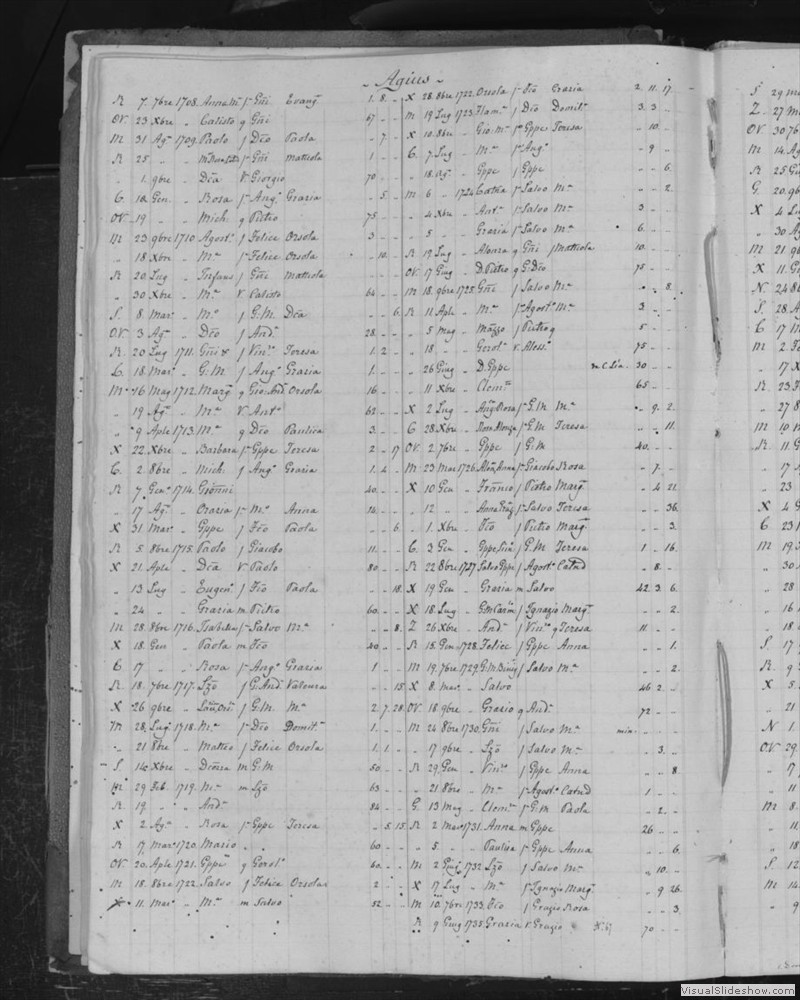 Agius
R 7. 7bre 1708. Anna M.ª fª Gñi Evang.ª 1. 8. -
OV 23 Xbre „ Calisto q Gñi 67 - -
M 31 Ag.º 1709. Paolo fº Dẽo Paola - 7. -
R 25 „ „ fª Gñi Mattiola 1 - -
„ 1. 9bre „ Dẽa V. Giorgio 70 - -
C. 12 Gen. „ Rosa fª Ang.º Grazia - 5 -
OV. 19 „ „ Mich. q Pietro 75 - -
M 23 9bre 1710. Agost.º f Felice Orsola 3 - -
„ 18 Xbre „ M.ª fª Felice Orsola - 10. -
R 20 Lug „ f Gñi Mattiola
„ 30 Xbre „ M.ª V. Calisto 64 - -
S. 8 Mar. „ M.ª f G.M. Dẽa - - 6
OV. 3 Ag.º „ Dẽo f And.ª 28 - -
R. 20 Lug 1711. f Vin.º Teresa 1. 2 -
C. 18 Mar.º „ G.M. f Ang.º Grazia 1 - -
M. 16 Mag 1712. Marg.ª q Gio: And. Orsola 16 - -
„ 19 Ag.º „ M.ª V. Ant.º 62 - -
„ 9 Aple 1713. M.ª q Dẽo Paulica 3. - -
X 22 Xbre „ Barbara fª Gppe Teresa 2 - 17
C. 2 8bre „ Mich. f Ang.º Grazia 1. 4 -
R 7. Gen.º 1714. Giõnni 40 - -
„ 17 Ag.º „ Orazia fª M.º Anna 14 - -
X 31 Mar. „ Gppe f Ito Paola - - 6.
R 5 8bre 1715. Paolo f Giacobo 11 - -
X 21 Aple „ Dẽa V. Paolo 80 - -
„ 13 Lug „ Eugen.ª f Ito Paola - - 18.
„ 24 „ „ Grazia m Pietro 60 - -
M 28 8bre 1716. Isabella fª Salvo M.ª „ „ 8.
X 18 Gen „ Paola m Ito 40 - -
C 17 „ „ Rosa fª Ang.º Grazia 1 - -
R. 18. 7bre 1717. Lzõ f G. And. Valenza - - 15
X 26 9bre „ f G.M. M.ª 2. 7. 28
M 28. Lug 1718. M.ª fª Dẽo Domit.ª 1 - -
„ 21 8bre „ Matteo f Felice Orsola 1. 1. -
S. 14 Xbre „ Dionra m G.M 50 - -
M 29 Feb. 1719. M.ª m Lzõ 63 - -
R 19. „ „ And.ª 84 - -
X 2 Ag.º „ Rosa fª Gppe Teresa - 5. 15
R 17 Mar.º 1720. Mario 60 - -
OV 20. Aple 1721. Gppe q Gerol.º 60 - -
M 18. 8bre 1722. Salvo f Felice Orsola 2 - -
X 11. Mar. „ M.ª m Salvo 52 - -
X 28. 8bre 1722. Orsola fª Ito Grazia 2. 11. 17.
M 19 Lug 1723. Flam.ª f Dẽo Domit.ª 3. 3 -
X 10. 8bre „ Gio: M.ª fª Gppe Teresa - 10. -
C. 7. Lug „ M.ª fª Ang.º - 9 -
„ 18. Ag.º „ Gppe f Gppe - - 6.
M 6 „ 1724. fª Salvo M.ª - - 2
„ 4 Xbre „ Ant.º fª Salvo M.ª 3 - -
„ 5 „ Grazia fª Salvo M.ª 6 - -
R 19 Lug „ Alonza q Gñi f Mattiola 10. - -
OV. 17 Giug „ D. Pietro q G: Dẽo 75 - -
M 18. 9bre 1725. Gñi f Salvo M.ª - - 8.
R 11. Aple „ M.ª fª Agost.º M.ª 3 - -
„ 5 Mag „ Mazzo f Pietro q 5 - -
„ 18 „ „ Gerol.º v. Aless.º 75 - -
„ 26 Giug „ D. Gppe 30 - -
„ 11 Xbre „ Clem.ª 65 - -
X 2 Lug „ Ang.ª Rosa fª G.M. M.ª - 9. 2.
C 28 Xbre „ Rosa Alonza fª G.M. Teresa „ „ 11.
OV. 2. 7bre „ Gppe f G:M 40 - -
M 23 Mar 1726. Anna fª Giacobo Rosa - 7. -
X 10 Gen „ Franco f Pietro Marg.ª - 4 21.
„ 12 „ „ fª Salvo Teresa - - 36.
„ 1. Xbre „ Ito f Pietro Marg.ª - - 3.
C. 3 Gen „ f G.M. Teresa 1 - 16.
R 22 8bre 1727. Salvo Gppe f Agost.º Catud - 8. -
X 19 Gen „ Grazia m Salvo 42. 3. 6.
X 18 Lug „ f Ignazio Marg.ª „ „ 2.
Z 26 Xbre „ And.ª f Vin.º q Teresa 11. - -
R 15. Gen 1728. Felice f Gppe Anna - - 1.
M 19. 7bre 1729. f Salvo M.ª - - 2.
X 8. Mar. „ Salvo 46. 2. -
OV. 18. 9bre „ Grazio q And.ª 72 - -
M 24 8bre 1730. Gñi f Salvo M.ª min.
„ 17 9bre „ Lzõ f Salvo M.ª „ 3. „
R. 29. Gen „ Vin.º f Gppe Anna „ „ 8.
„ 21 8bre „ M.ª fª Agost.º Catud 1 - -
G. 13 Mag „ Clem.ª fª G:M Paola - 2. -
R 2 Mar.º 1731. Anna m Gppe 26 - -
„ 5 „ „ Paulica fª Gppe Anna „ „ 6.
M 2 Giug 1732. Lzõ f Salvo M.ª „ 10. „
X 17 Lug „ M.ª fª Ignazio Marg.ª „ 9 26.
M 10. 7bre 1733. Ito f Grazio Rosa „ „ 3
R 9 Giug 1735. Grazia v. Grazio 70 - -
S 29
Z 27
OV 30
M 14
R 25
G. 20
X 4
„ 30
M 21
X 11
N. 24
S. 28
C 17
M 2
„ 17
R 23
„ 27
M 10
R. 11
„ 17
„ 23
X 4
C 23
M 19
„ 30
„ 28
„ 16
„ 18
S. 17
R. 9
X 5
„ 21
N 1.
OV 29
„ 17
„ 11
M 8
„ 11
„ 18
S 12
M 14
„ 9
VisualSlideshow.com